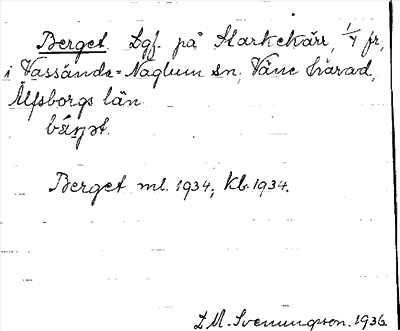 Berget. Lgf. på Starkekärr, 1/4 fr,
i Vassända=Naglum sn, Väne härad,
Älfsborgs län.
Berget ml. 1934; kb. 1934.
L M. Svenungsson. 1936